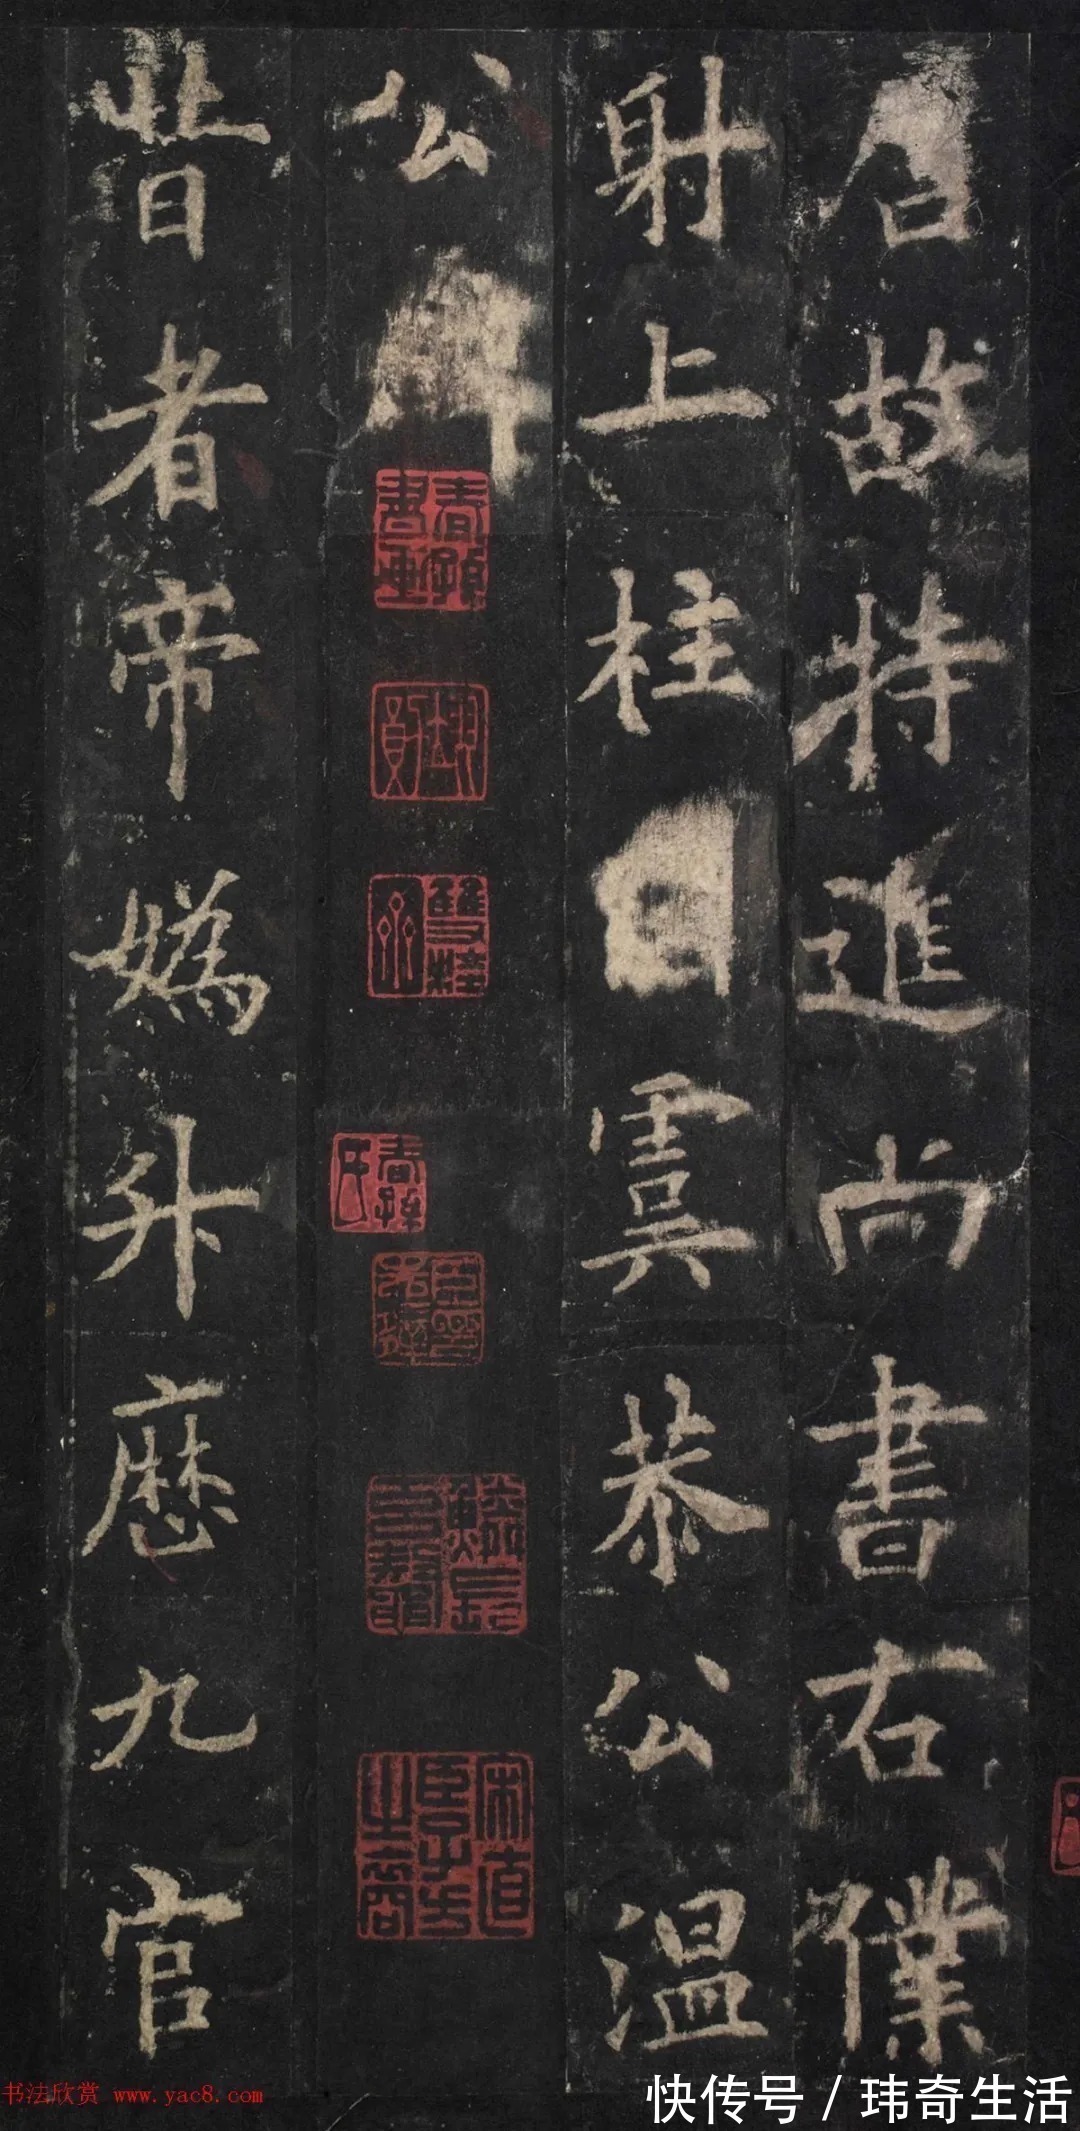 唐故特進尚書右僕
射上柱國虞恭公温
公碑
昔者帝媯升歷九官
书法欣赏 www.yac8.com
快传号 / 玮奇生活